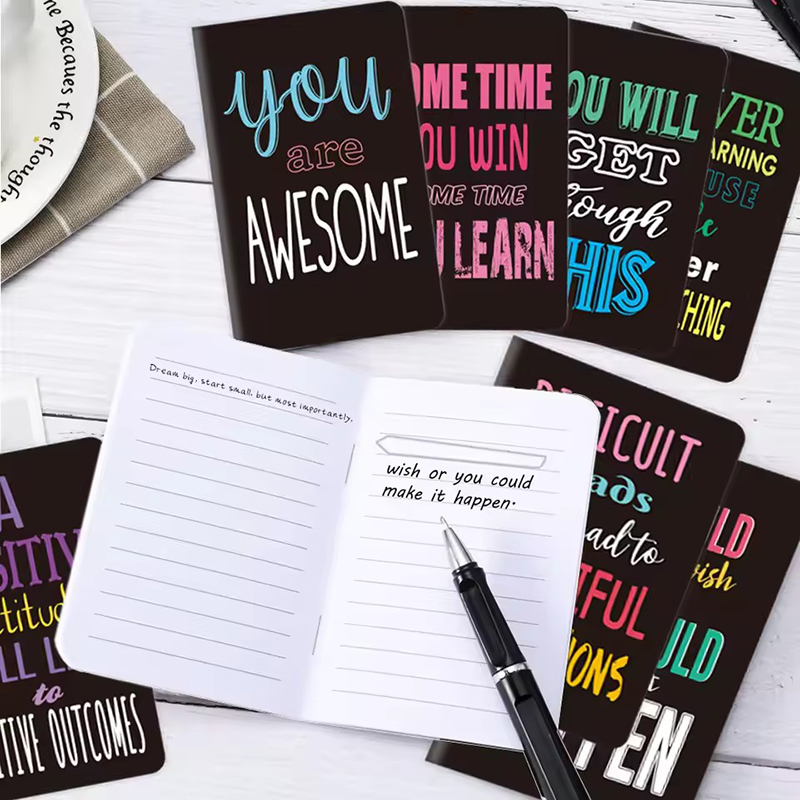 me Becaues the though
YOU
are
AWESOME
OME TIME
OU WIN
OME TIME
U LEARN
OU WILL
GET
hough
HIS
VER
ARNING
USE
e
er
HING
Dream big, start small, but most importantly.
wish or you could
make it happen.
A
SITIV
ttitud
LL L
to
TIVE OUTCOMES
DIFFICULT
ads
ad to
IFUL
IONS
LD
wish
ULD
EN